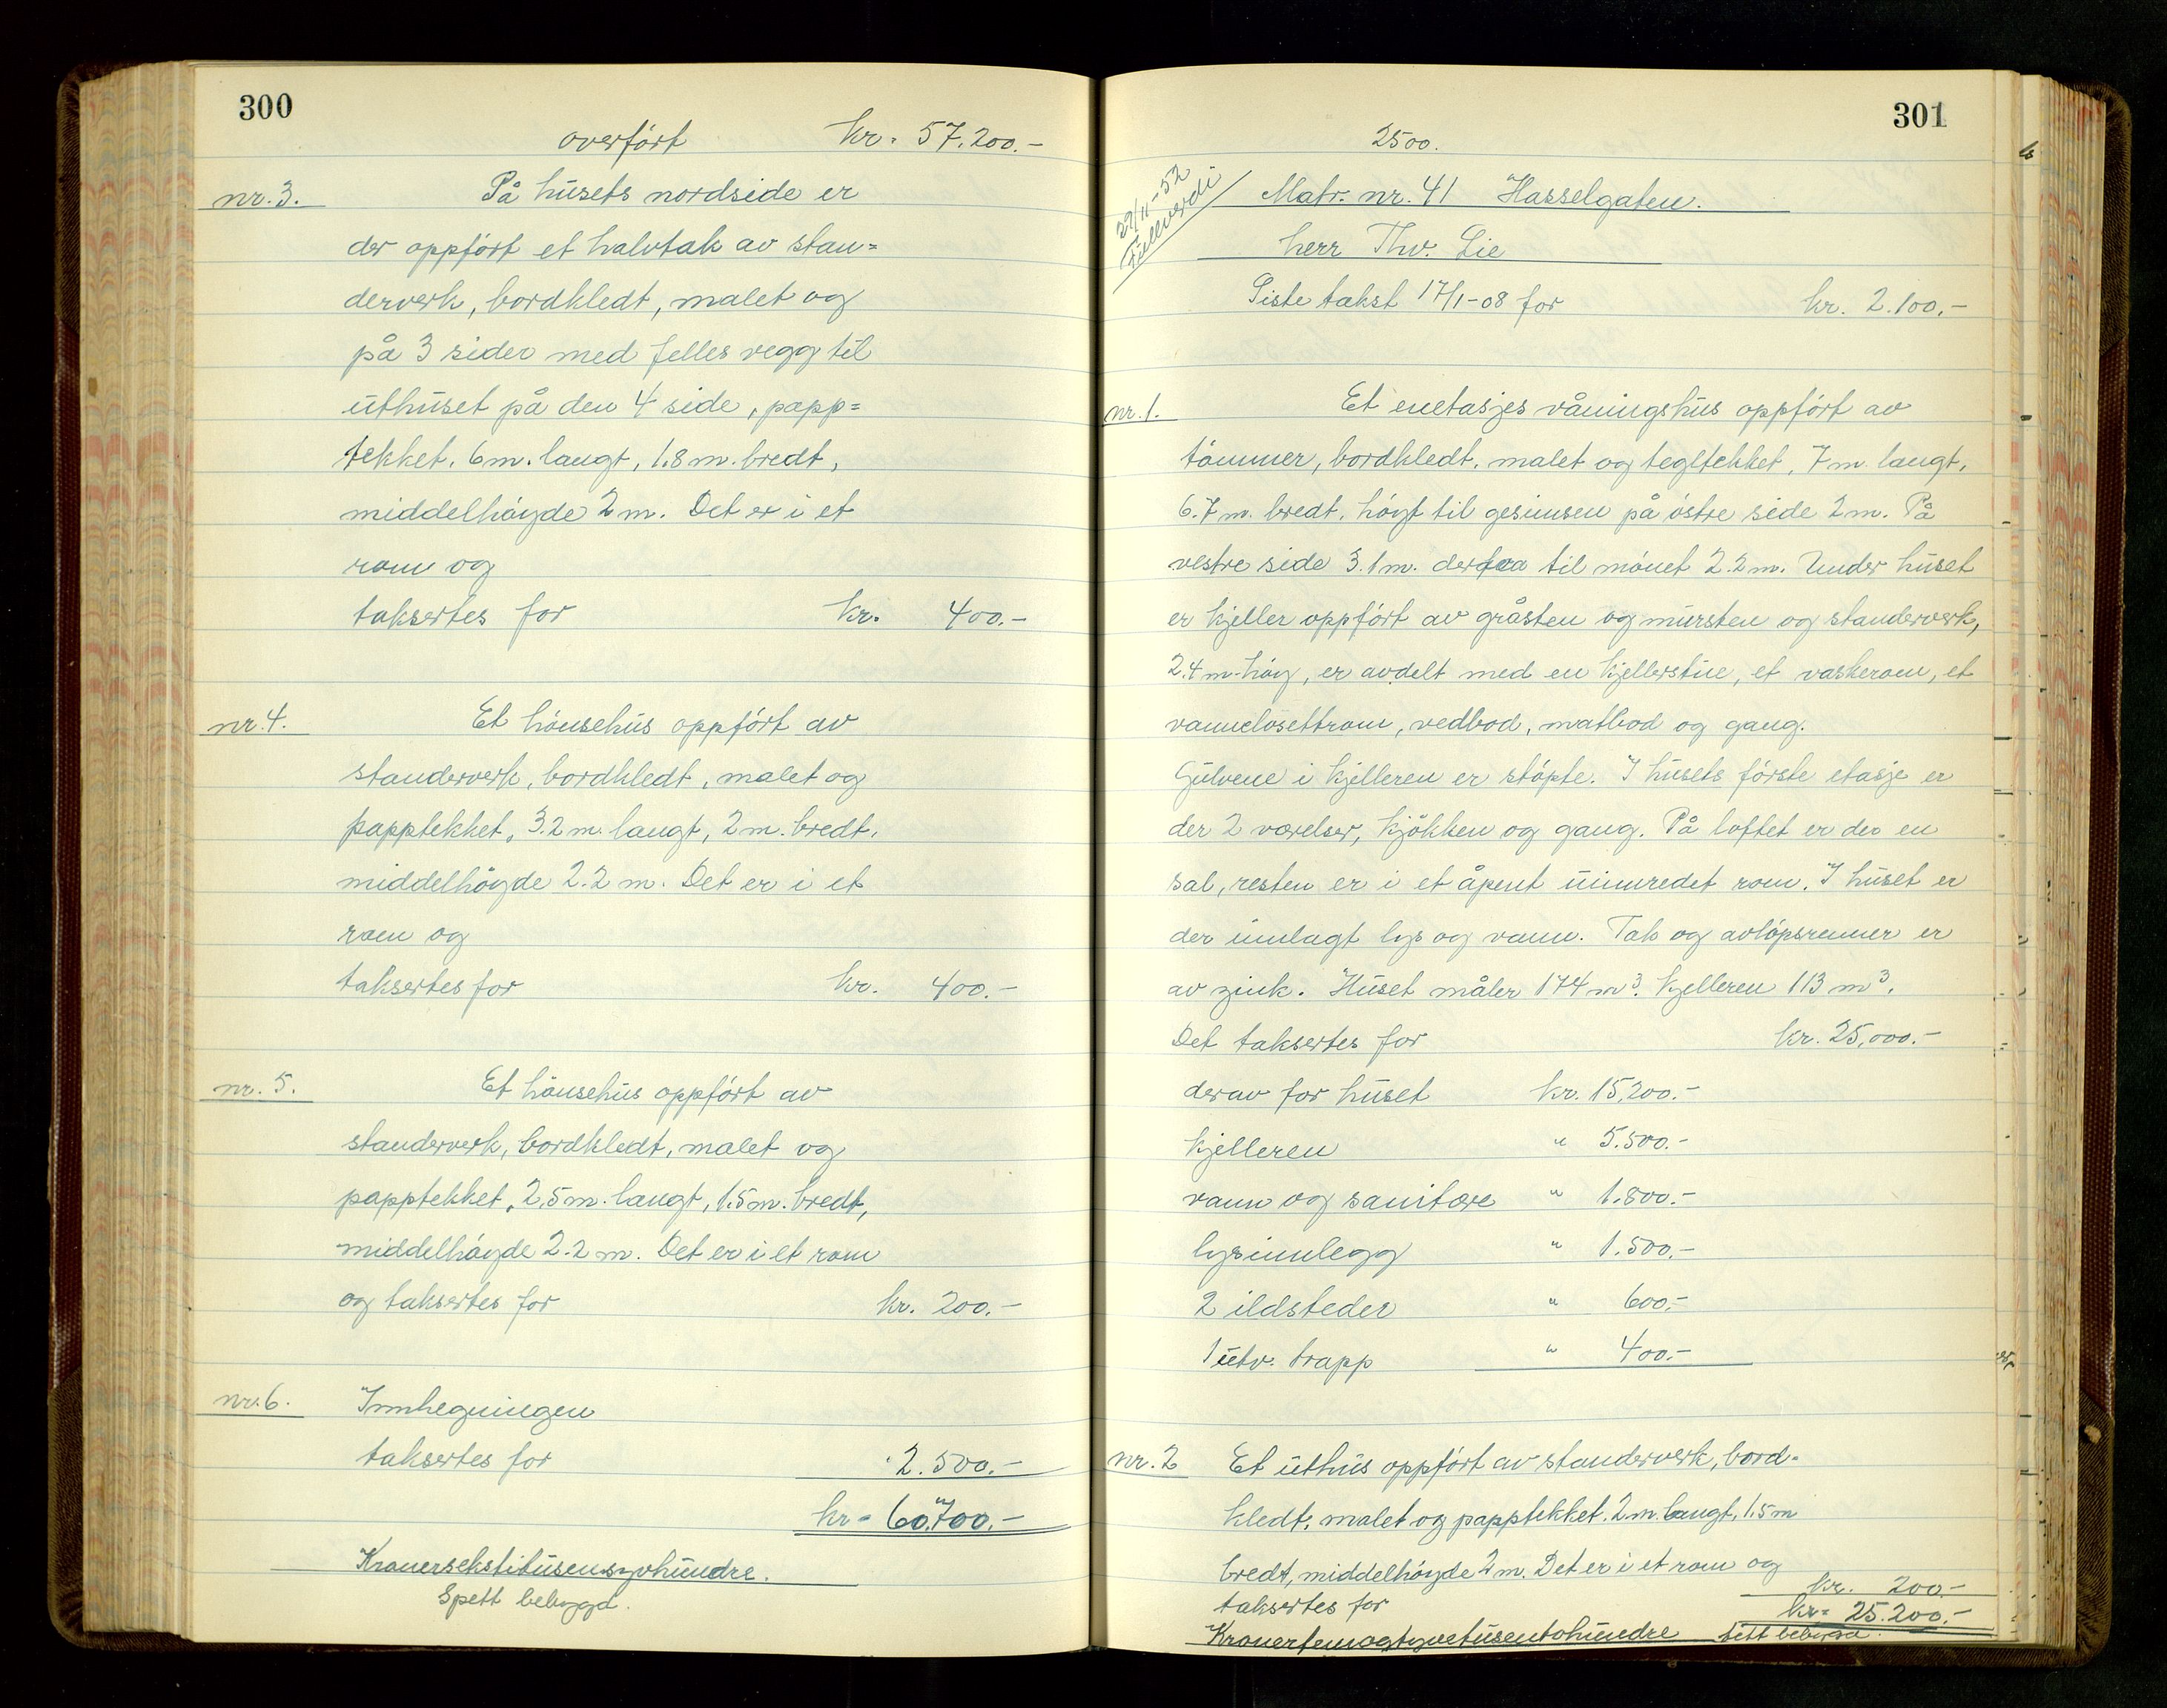 300
overført kr. 57.200.-
nr. 3. På husets nordside er
der oppført et halvtak av stan=
derverk, bordkledt, malet og
på 3 sider med felles vegg til
uthuset på den 4 side, papp=
tekket. 6 m. langt, 1.8 m. bredt,
middelhøyde 2 m. Det er i et
rom og
taksertes for kr. 400.-
nr. 4. Et hønsehus oppført av
standerverk, bordkledt, malet og
papptekket, 3.2 m. langt, 2 m. bredt,
middelhøyde 2.2 m. Det er i et
rom og
taksertes for kr. 400.-
nr. 5. Et hønsehus oppført av
standerverk, bordkledt, malet og
papptekket, 2,5 m. langt, 1.5 m. bredt,
middelhøyde 2.2 m. Det er i et rom
og taksertes for kr. 200.-
nr. 6. Innhegningen
taksertes for 2.500.-
kr= 60.700.-
Kronersekstitusensyvhundre.
Spett bebygd.
301
2500.
29/11-52
Fullverdi
Matr. nr. 41 Hasselgaten.
herr Thv. Lie
Siste takst 17/1-08 for kr. 2.100.-
nr. 1. Et enetasjes våningshus oppført av
tømmer, bordkledt, malet og tegltekket, 7 m langt,
6.7 m. bredt, høyt til gesimsen på østre side 2 m. På
vestre side 3.1 m. derfra til mønet 2.2 m. Under huset
er kjeller oppført av gråsten og mursten og standerverk,
2.4 m høy, er avdelt med en kjellerstue, et vaskerom, et
vannclosettrom, vedbod, matbod og gang.
Gulvene i kjelleren er støpte. I husets første etasje er
der 2 værelser, kjøkken og gang. På loftet er der en
sal, resten er i et åpent uinnredet rom. I huset er
der innlagt lys og vann. Tak og avløpsrenner er
av zink. Huset måler 174 m³. kjelleren 113 m³.
Det taksertes for kr. 25,000.-
derav for huset kr. 15,200.-
kjelleren " 5.500.-
vann og sanitære " 1.800.-
lysinnlegg " 1.500.-
2 ildsteder " 600.-
1 utv. trapp " 400.-
nr. 2 Et uthus oppført av standerverk, bord-
kledt, malet og papptekket. 2 m. langt, 1.5 m
bredt, middelhøyde 2 m. Det er i et rom og
taksertes for kr. 200.-
kr= 25.200.-
Kronerfemogtyvetusentohundre tett bebygd.